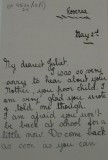 Roscrea
May 2nd
My dear Juliet
I was so very
sorry to hear about your
Mother, you poor child. I
am very glad you wrote
& told me though.
I am afraid you won't
be back in school for a
little over. Do come back
as soon as you can